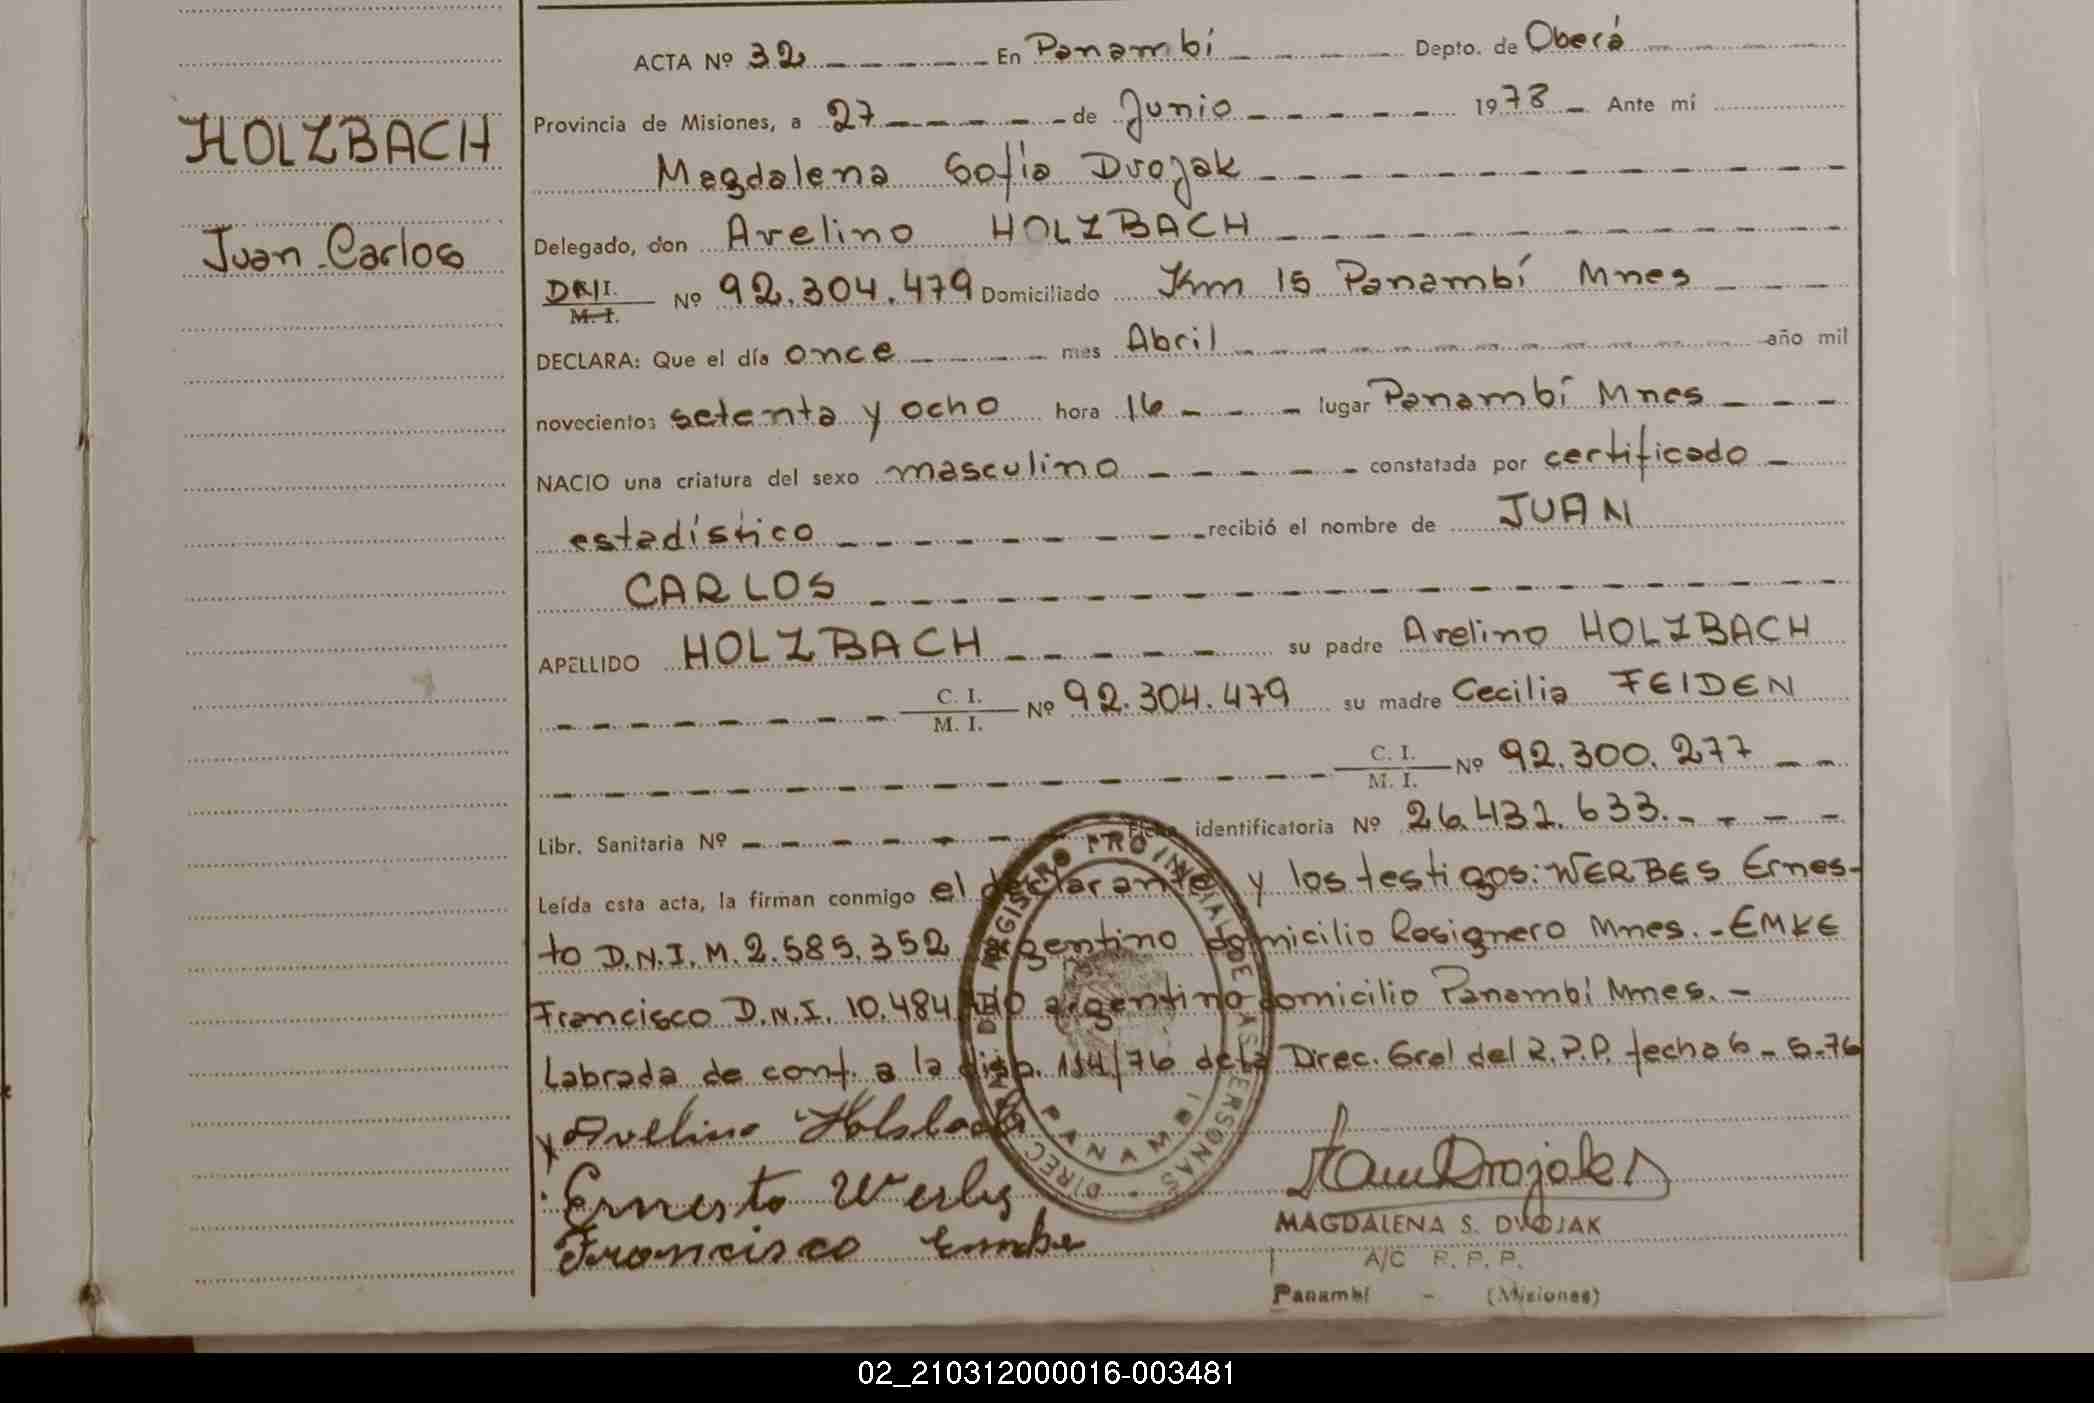 HOLZBACH
Juan Carlos
ACTA Nº 32 En Panambí Depto. de Oberá
Provincia de Misiones, a 27 de Junio 1978 Ante mí
Magdalena Sofía Dvojak
Delegado, don Avelino HOLZBACH
DNI. M. I. Nº 92.304.479 Domiciliado Km 15 Panambí Mnes
DECLARA: Que el día once mes Abril año mil
novecientos setenta y ocho hora 16 lugar Panambí Mnes
NACIO una criatura del sexo masculino constatada por certificado
estadístico recibió el nombre de JUAN
CARLOS
APELLIDO HOLZBACH su padre Avelino HOLZBACH
C. I. M. I. Nº 92.304.479 su madre Cecilia FEIDEN
C. I. M. I. Nº 92.300.277
Libr. Sanitaria Nº Ficha identificatoria Nº 26.432.633.
Leída esta acta, la firman conmigo el declarante y los testigos: WERBES Ernes-
to D.N.I. M. 2.585.352 argentino domicilio Mnes. - EMKE
Francisco D.N.I. 10.484 argentino domicilio Panambí Mnes. -
Labrada de conf. a la disp. 114/76 de la Direc. Gral del R.P.P. fecha 6-5-76
Avelino Holsbach
Ernesto Werbes
Francisco Emke
REGISTRO PROVINCIAL DE LAS PERSONAS
DIREC
PANAMBI
MAGDALENA S. DVOJAK
A/C R. P. P.
Panambí - (Misiones)
02_210312000016-003481